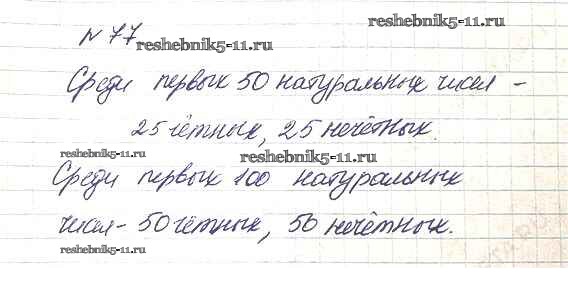 № 77
reshebnik5-11.ru
Среди первых 50 натуральных чисел -
25 чётных, 25 нечётных.
reshebnik5-11.ru reshebnik5-11.ru
Среди первых 100 натуральных
чисел - 50 чётных, 50 нечётных.
reshebnik5-11.ru